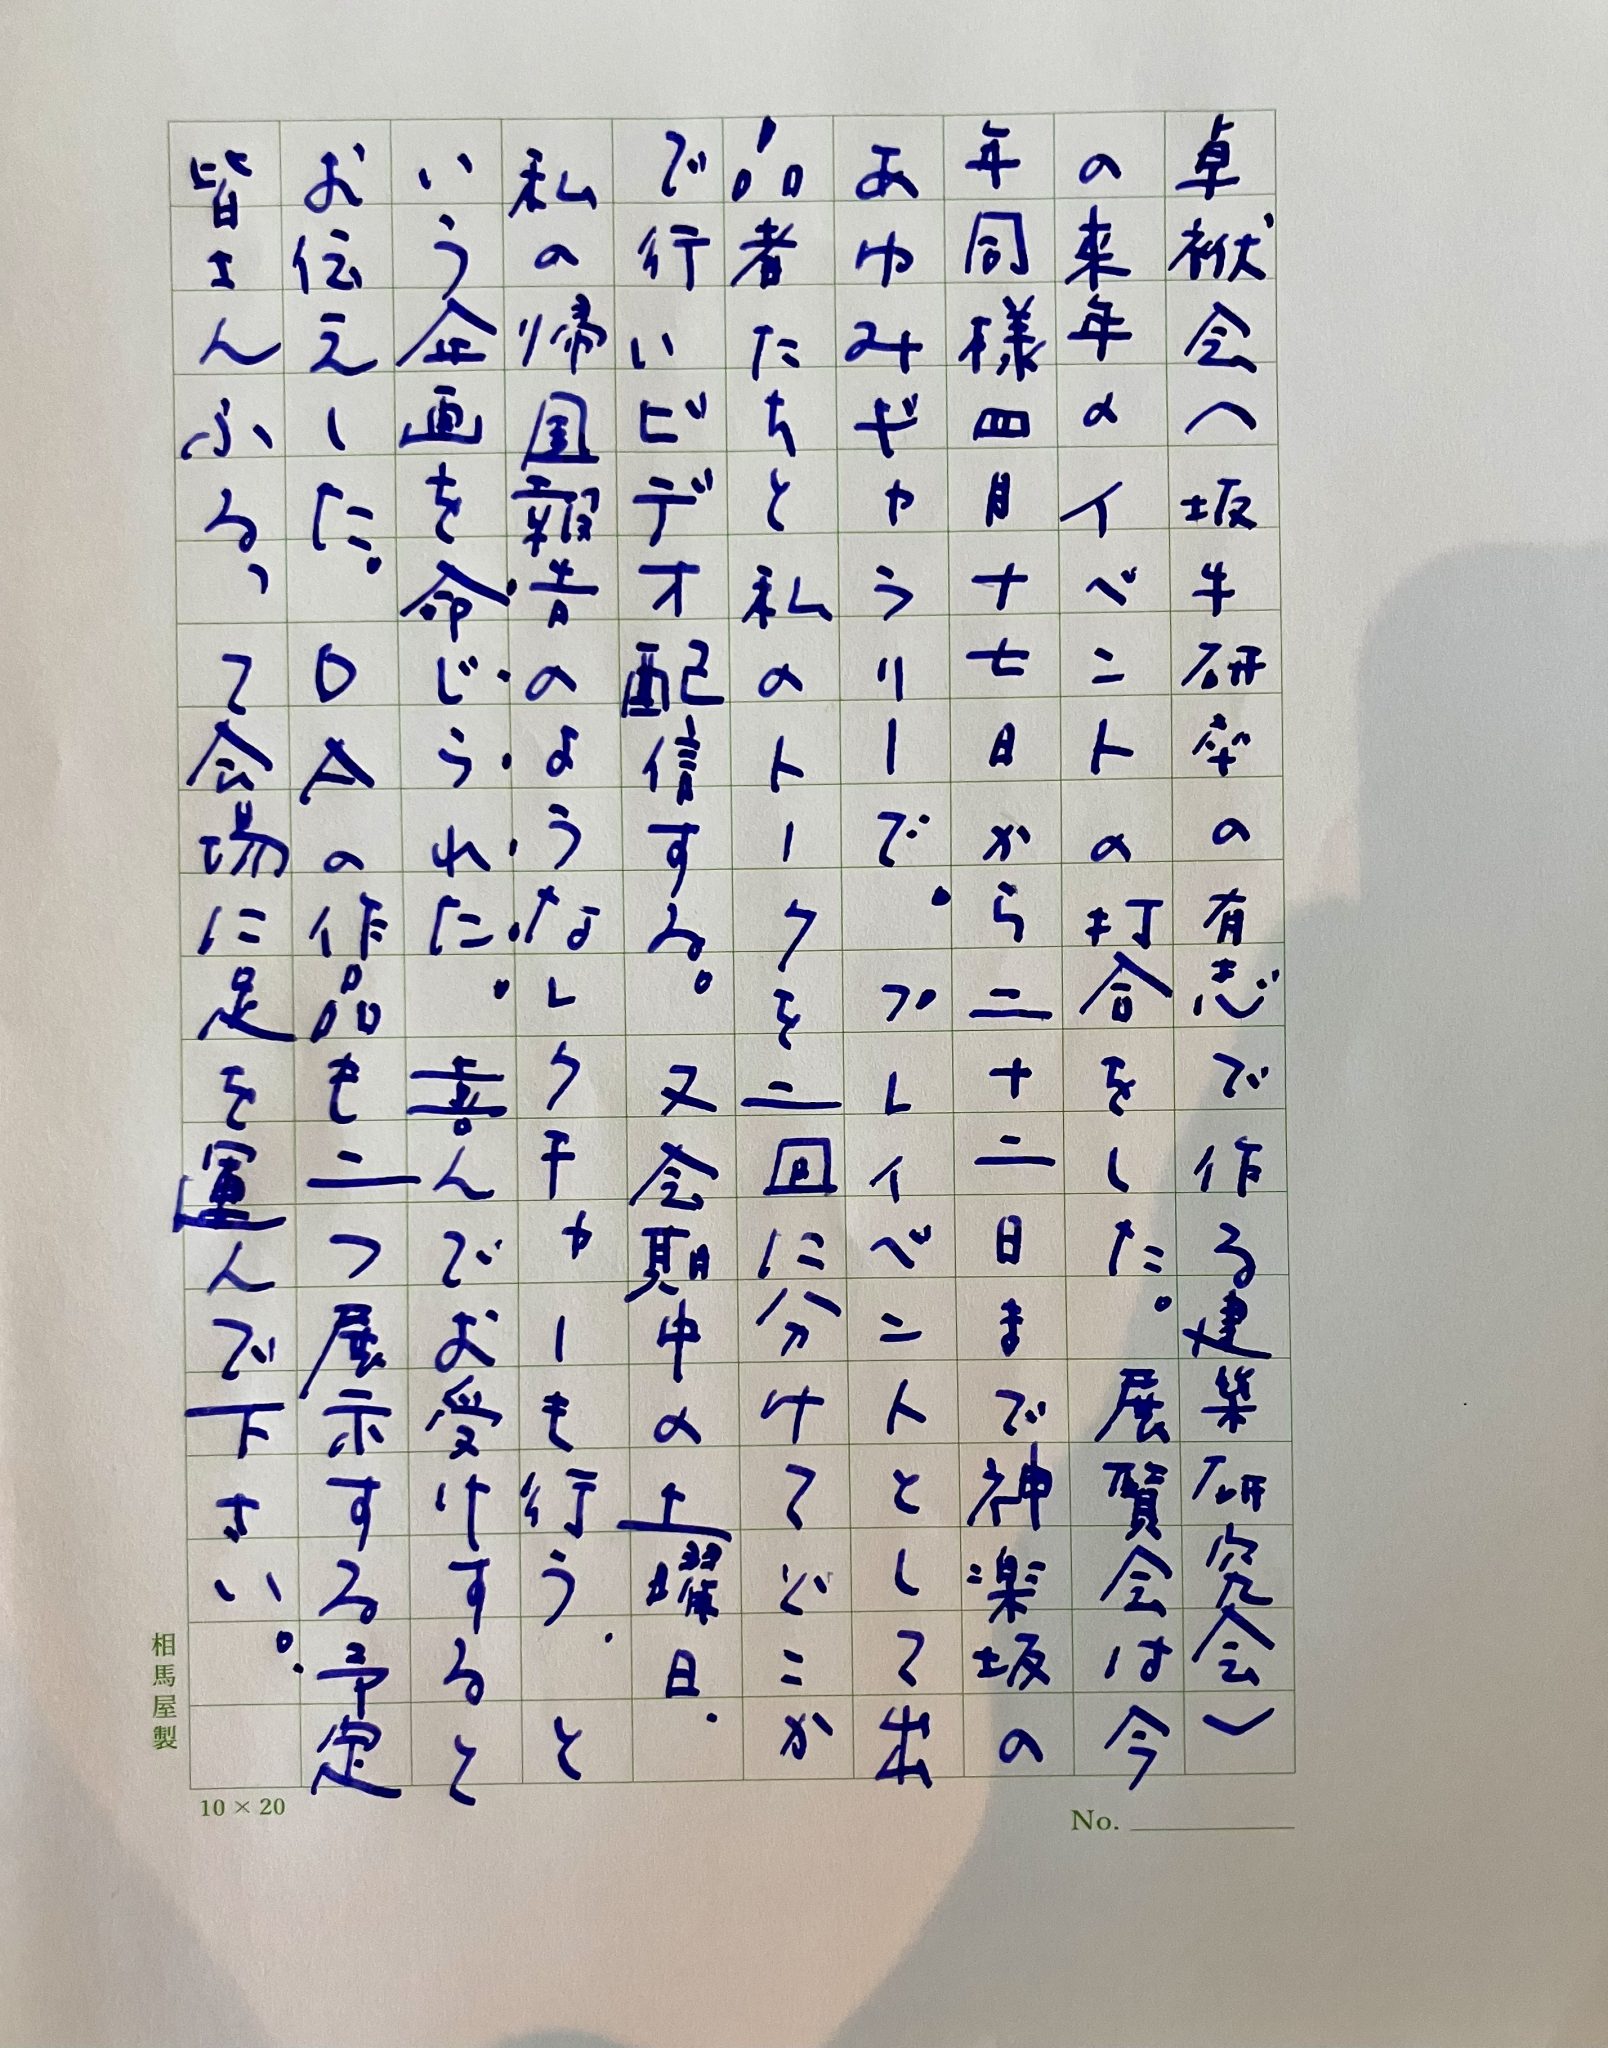 卓袱会（坂牛研卒の有志で作る建築研究会）
の来年のイベントの打合をした。展覧会は今
年同様四月十七日から二十二日まで神楽坂の
あゆみギャラリーで。プレイベントとして出
品者たちと私のトークを二回に分けてどこか
で行いビデオ配信する。又会期中の土曜日、
私の帰国報告のようなレクチャーも行う、と
いう企画を命じられた。喜んでお受けすると
お伝えした。OAの作品も二つ展示する予定
皆さんふるって会場に足を運んで下さい。
相馬屋製
10×20
No.